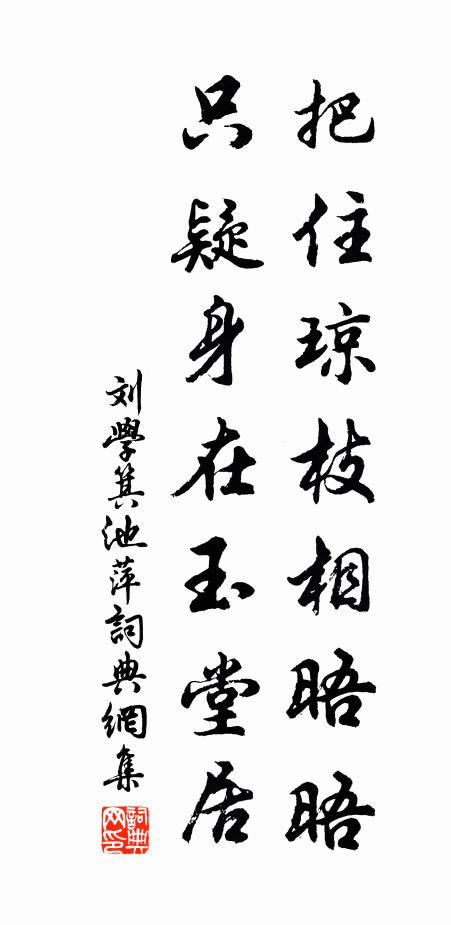 把住琼枝相晤晤
只疑身在玉堂居
刘學箕池萍詞典網集
詞典
网印